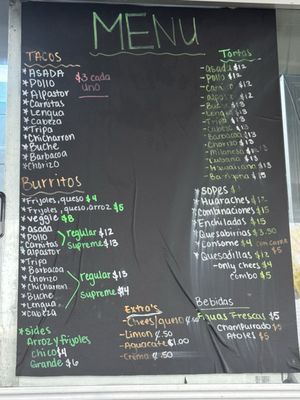 MENU
TACOS
* ASADA
* POLLO
* Alpastor
* Carnitas
* Lengua
* Cabeza
* Tripa
* Chicharron
* Buche
* Barbacoa
* Chorizo
$3 cada
uno
Burritos
* Frijoles, queso $4
* Frijoles, queso, arroz $5
* veggie $8
* asada
* Pollo
* Carnitas
* alpastor
regular $12
Supreme $13
* Tripa
* Barbacoa
* Chorizo
* Chicharron
* Buche
* Lengua
* Cabeza
regular $13
Supreme $14
* Sides
Arroz y frijoles
Chico $4
Grande $6
Tortas
- asada $12
- Pollo $12
- Carnitas $12
- alpastor $12
- Buche $13
- Lengua $13
- Tripa $13
- Cabeza $13
- Barbacoa $13
- Chorizo $13
- Milanesa $13
- Cubana $13
- Hawaiiana $13
* SOPES $
* Huaraches $12
* Combinaciones $15
* Enchiladas $15
* Quesabirias $3.50
* Consome $4 con carne $5
* Quesadillas $12
- only chees $4
combo $5
Extra's
- Chees/queso
- Limon ¢.50
- Aguacate $1.00
- Crema ¢.50
Bebidas
Aguas Frescas $5
Champurrado $5
Atoles $5